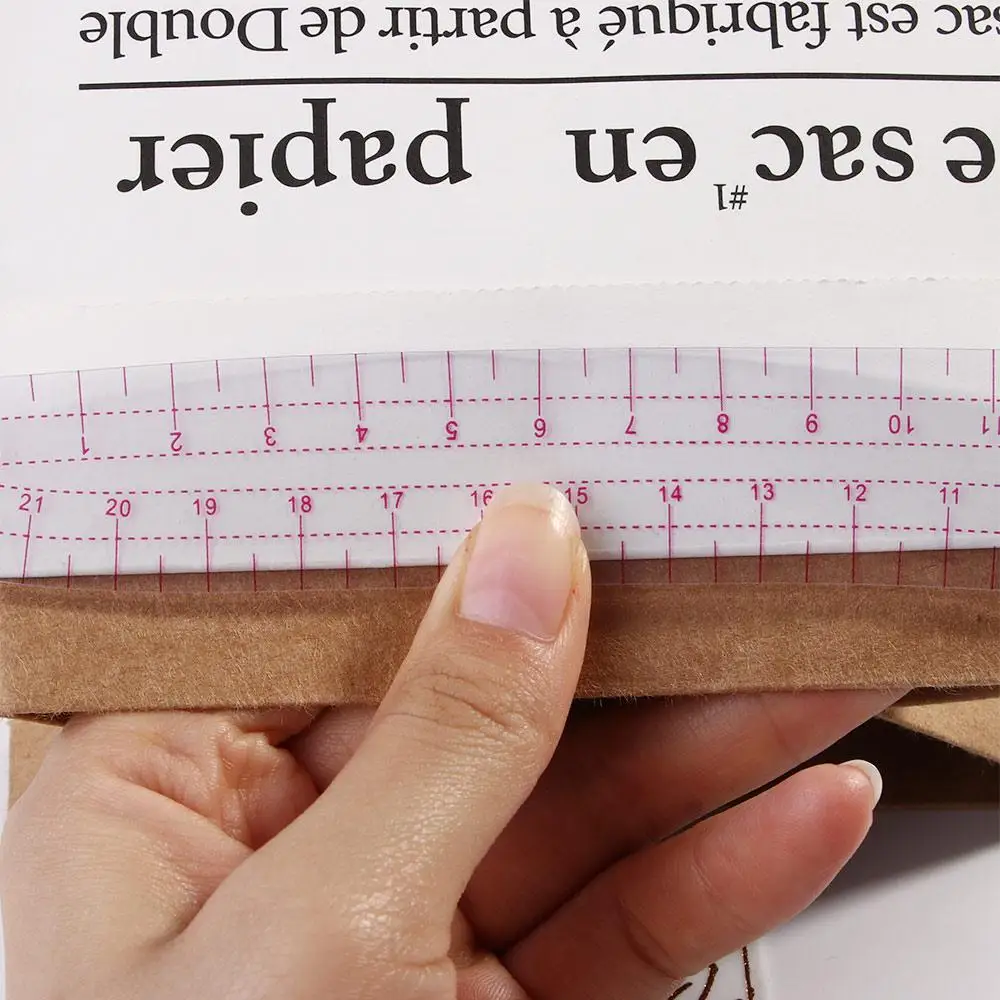 e sac en papier
#1
sac est fabriqué à partir de Double
1 2 3 4 5 6 7 8 9 10 11
21 20 19 18 17 16 15 14 13 12 11